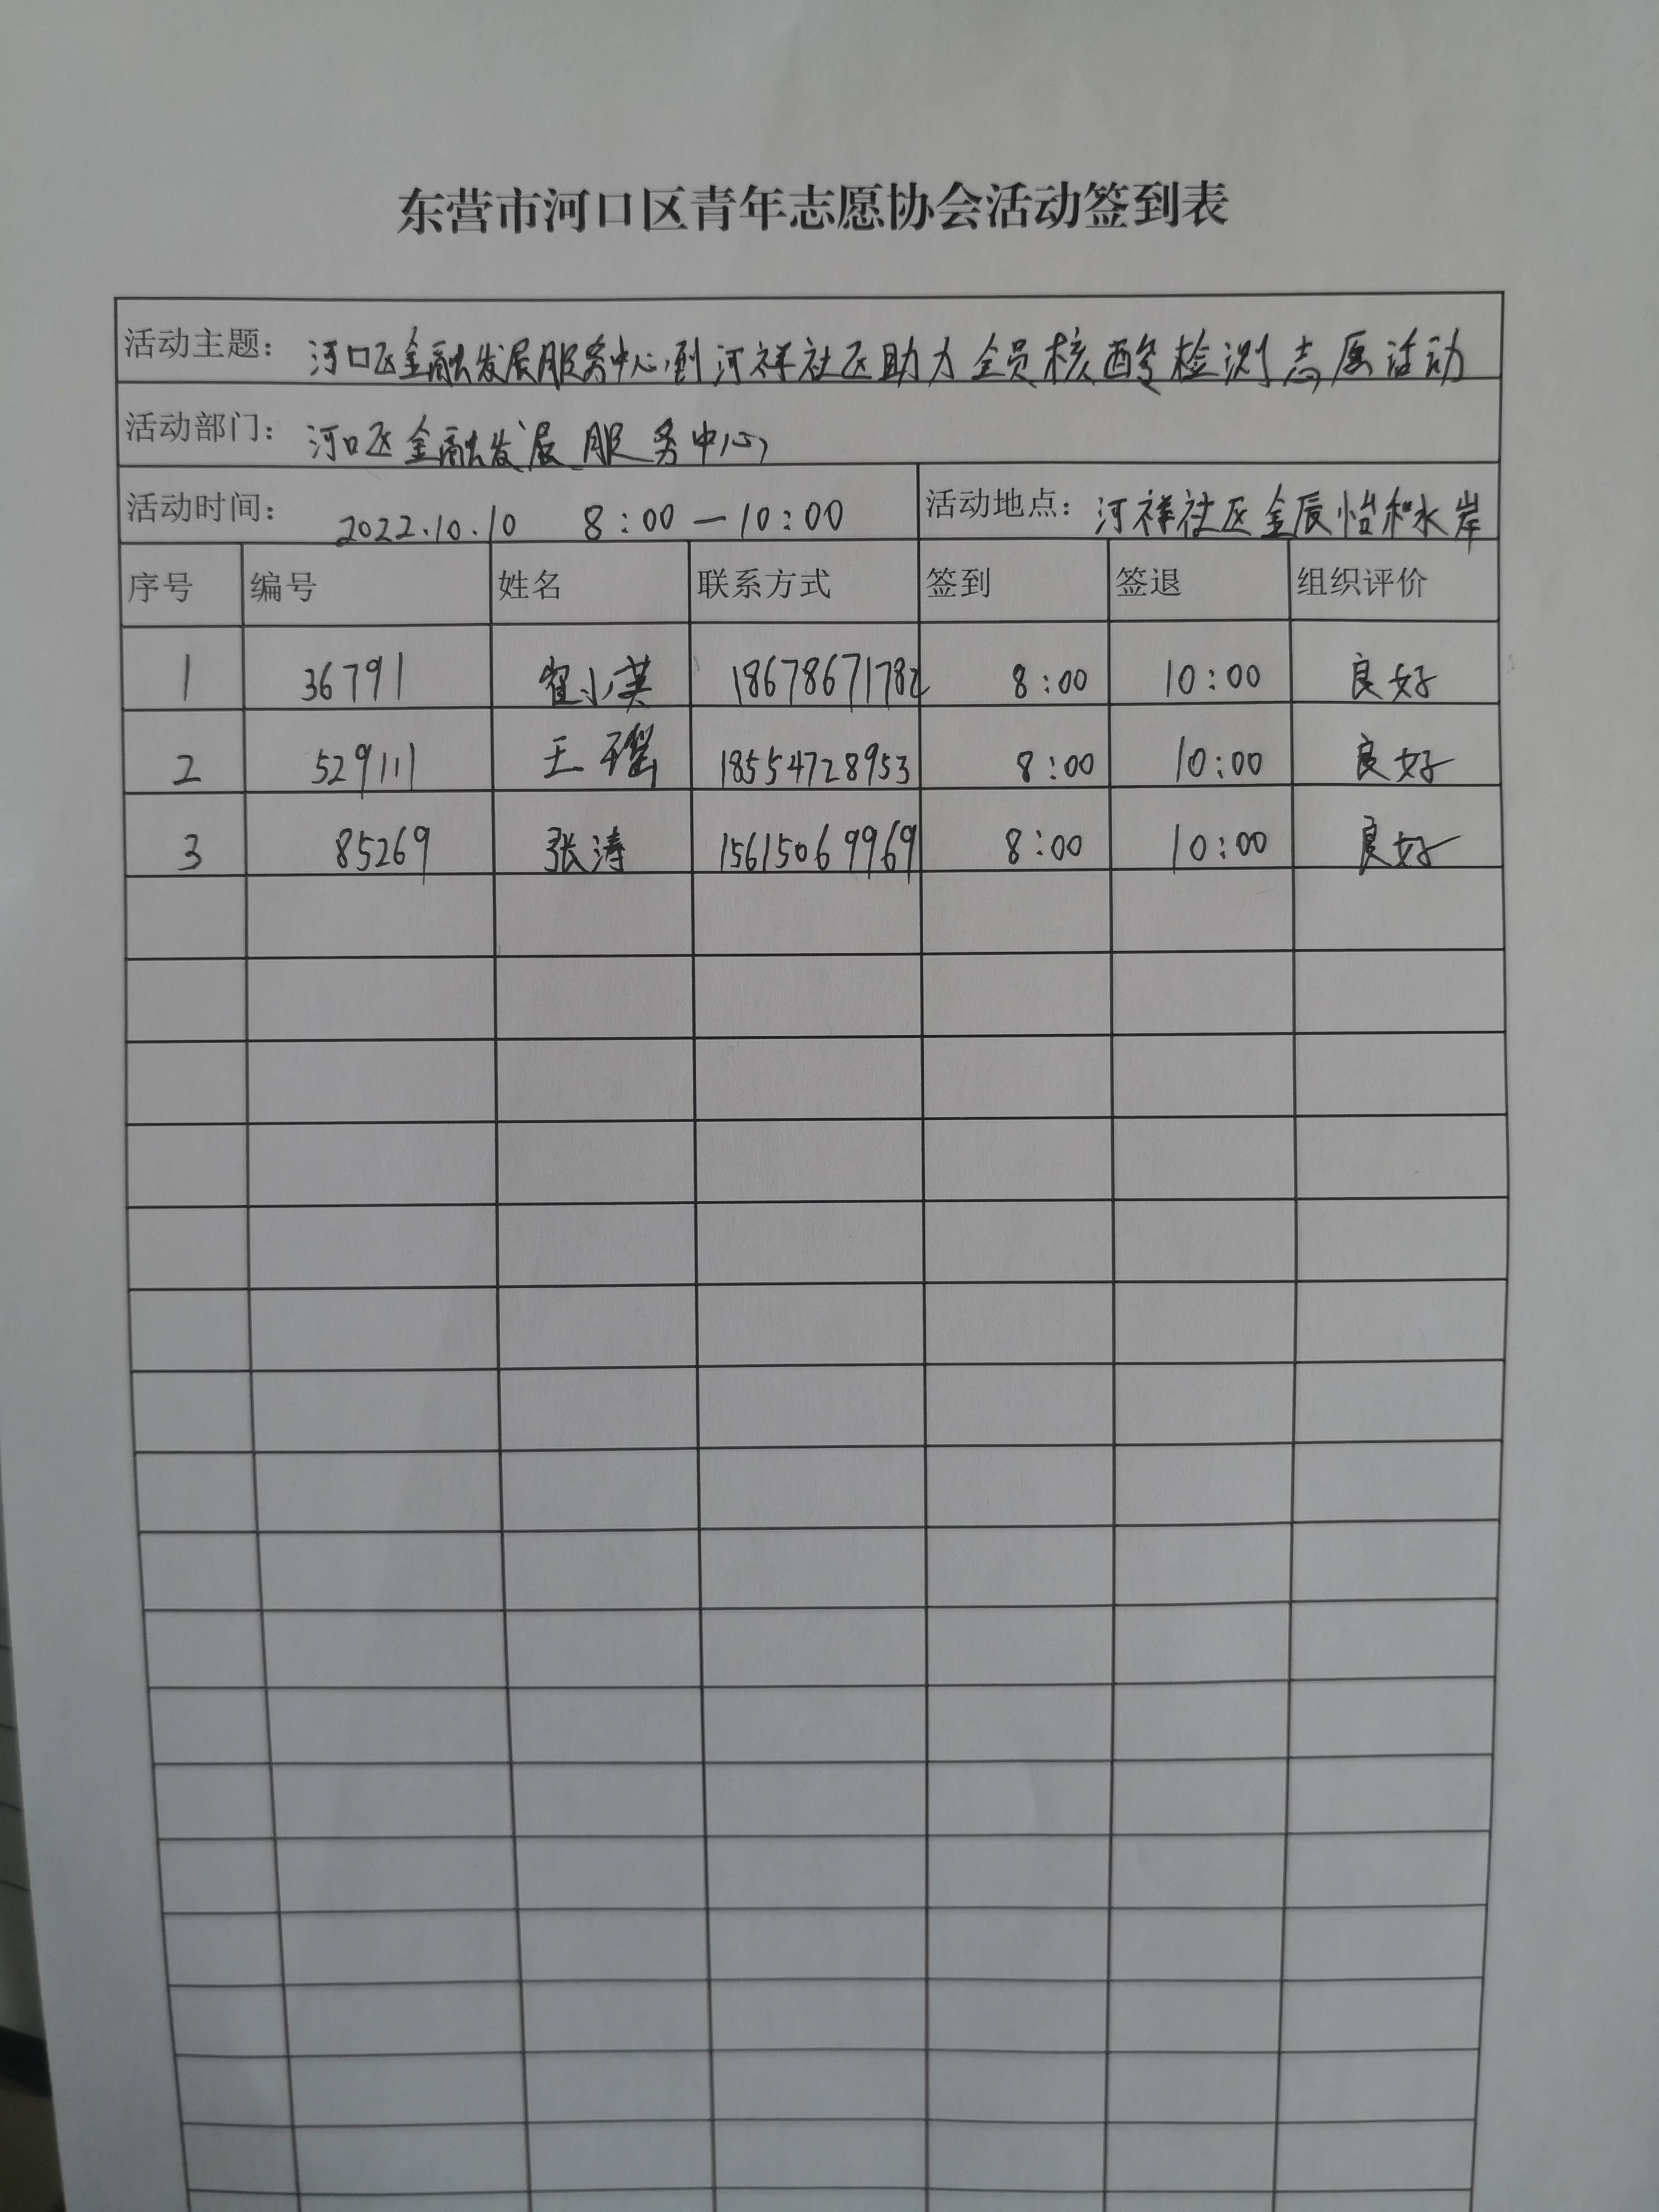 东营市河口区青年志愿协会活动签到表
活动主题： 河口区金融发展服务中心到河祥社区助力全员核酸检测志愿活动
活动部门： 河口区金融发展服务中心
活动时间： 2022.10.10 8:00—10:00 活动地点： 河祥社区金辰怡和水岸
序号 编号 姓名 联系方式 签到 签退 组织评价
1 36791 崔小英 18678671782 8:00 10:00 良好
2 529111 王瑶 18554728953 8:00 10:00 良好
3 85269 张涛 15615069969 8:00 10:00 良好